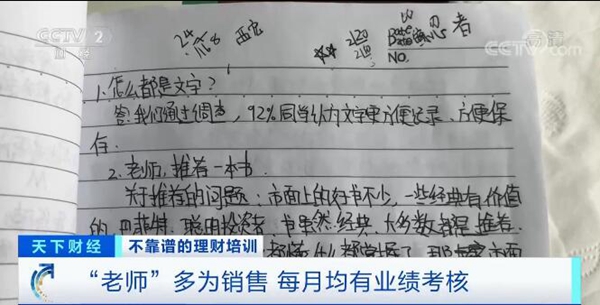 CCTV 2
财经
CCTV 高清
24
西安
思考者
Date
NO.
1.怎么都是文字?
答:我们通过调查,92%同学认为文字更方便记录、方便保
存.
2.老师,推荐一本书.
关于推荐的问题:市面上的好书不少,一些经典有价值
的,巴菲特,聪明投资者,书虽然经典,大多数都是推荐.
市面
天下财经
不靠谱的理财培训
“老师”多为销售 每月均有业绩考核